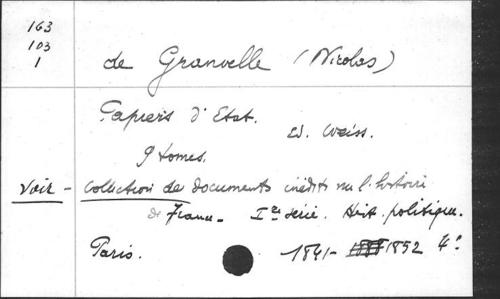 163
103
1
de Granvelle (Nicolas)
Papiers d'Etat.
Ed. Weiss.
9 tomes.
Voir - Collection de documents inédits sur l'histoire
de France - Iere série. Hist. politique.
Paris. 1841- 1852 4°